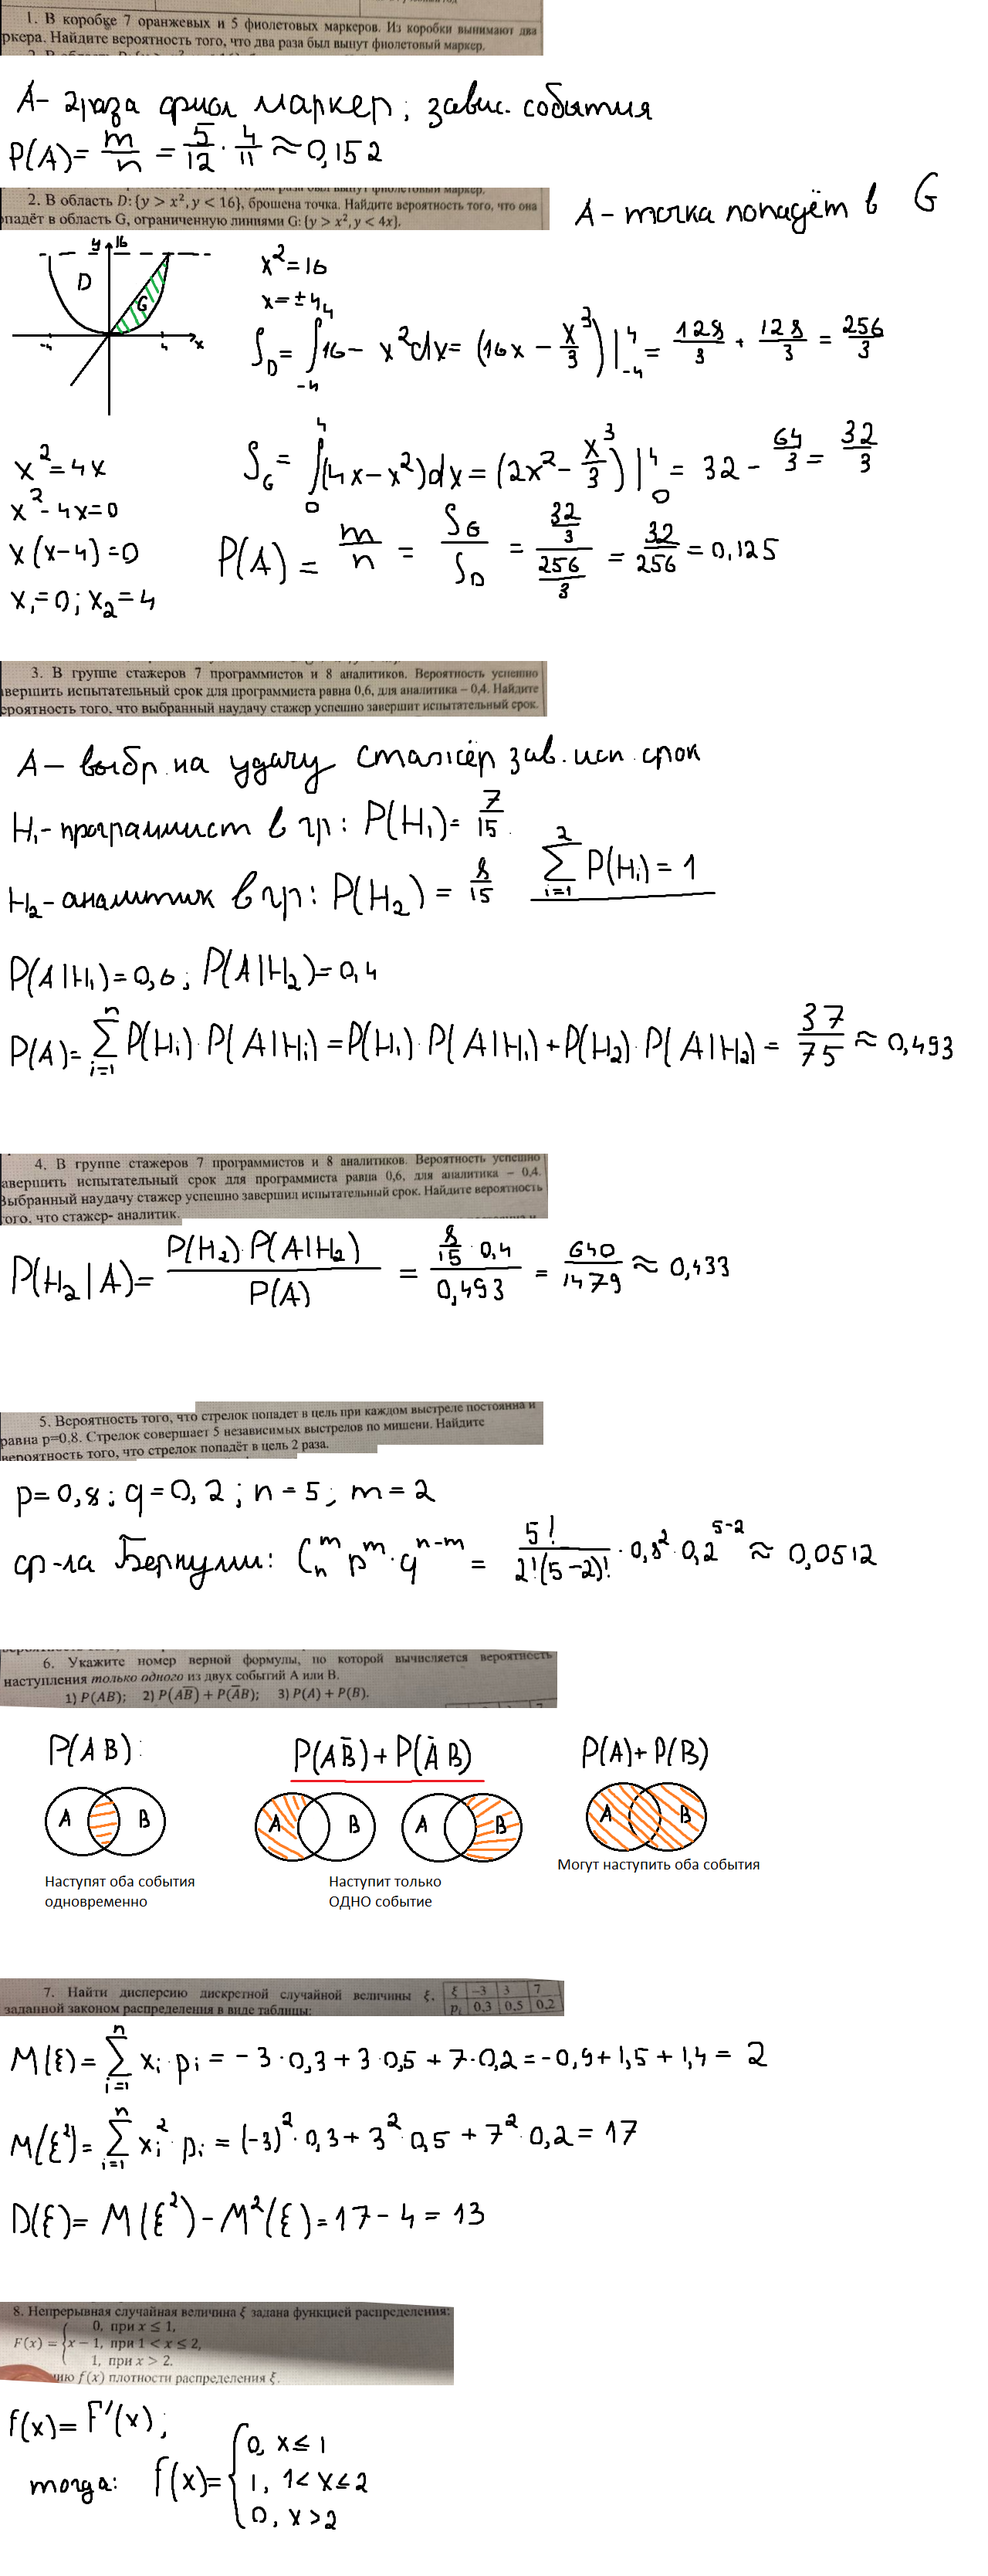 1. В коробке 7 оранжевых и 5 фиолетовых маркеров. Из коробки вынимают два
ркера. Найдите вероятность того, что два раза был вынут фиолетовый маркер.
A- 2 раза фиол маркер; завис. события
P(A)= m/n = 5/12 · 4/11 ≈ 0,152
2. В область D: {y > x², y < 16}, брошена точка. Найдите вероятность того, что она
опадёт в область G, ограниченную линиями G: {y > x², y < 4x}.
A- точка попадёт в G
y 16
D G
-4 4 x
x²=16
x=±4
S_D= ∫_{-4}^{4} 16 - x²dx= (16x - x³/3)|_{-4}^{4} = 128/3 + 128/3 = 256/3
x²=4x
x²-4x=0
x(x-4)=0
x₁=0; x₂=4
S_G = ∫_0^4 (4x-x²)dx=(2x²-x³/3)|_0^4 = 32 - 64/3 = 32/3
P(A) = m/n = S_G/S_D = (32/3)/(256/3) = 32/256 = 0,125
3. В группе стажеров 7 программистов и 8 аналитиков. Вероятность успешно
авершить испытательный срок для программиста равна 0,6, для аналитика – 0,4. Найдите
ероятность того, что выбранный наудачу стажер успешно завершит испытательный срок.
A- выбр. на удачу стажёр зав. исп. срок
H₁-программист в гр: P(H₁)= 7/15
H₂-аналитик в гр: P(H₂) = 8/15
∑_{i=1}^{2} P(Hi) = 1
P(A|H₁)=0,6; P(A|H₂)=0,4
P(A)= ∑_{i=1}^{n} P(Hi)·P(A|Hi)=P(H₁)·P(A|H₁)+P(H₂)·P(A|H₂) = 37/75 ≈ 0,493
4. В группе стажеров 7 программистов и 8 аналитиков. Вероятность успешно
авершить испытательный срок для программиста равна 0,6, для аналитика – 0,4.
Выбранный наудачу стажер успешно завершил испытательный срок. Найдите вероятность
того, что стажер- аналитик.
P(H₂|A)= P(H₂)·P(A|H₂)/P(A) = (8/15 · 0,4)/0,493 = 640/1479 ≈ 0,433
5. Вероятность того, что стрелок попадет в цель при каждом выстреле постоянна и
равна p=0,8. Стрелок совершает 5 независимых выстрелов по мишени. Найдите
вероятность того, что стрелок попадёт в цель 2 раза.
p=0,8; q=0,2; n=5; m=2
ф-ла Бернули: C_n^m p^m·q^{n-m} = 5!/2!(5-2)! · 0,8²·0,2^{5-2} ≈ 0,0512
6. Укажите номер верной формулы, по которой вычисляется вероятность
наступления только одного из двух событий A или B.
1) P(AB); 2) P(AB̅) + P(A̅B); 3) P(A) + P(B).
P(AB): P(AB̅)+P(A̅B) P(A)+P(B)
A B A B A B A B
Наступят оба события
одновременно
Наступит только
ОДНО событие
Могут наступить оба события
7. Найти дисперсию дискретной случайной величины ξ,
заданной законом распределения в виде таблицы:
ξ -3 3 7
pᵢ 0,3 0,5 0,2
M(ξ)= ∑_{i=1}^{n} xi·pi = -3·0,3+3·0,5+7·0,2=-0,9+1,5+1,4= 2
M(ξ²)= ∑_{i=1}^{n} xi²·pi = (-3)²·0,3+3²·0,5+7²·0,2=17
D(ξ)= M(ξ²)-M²(ξ)=17-4=13
8. Непрерывная случайная величина ξ задана функцией распределения:
0, при x ≤ 1,
F(x) = {x − 1, при 1 < x ≤ 2,
1, при x > 2.
ию f(x) плотности распределения ξ.
f(x)= F′(x);
тогда: f(x)={
0, x≤1
1, 1<x≤2
0, x>2